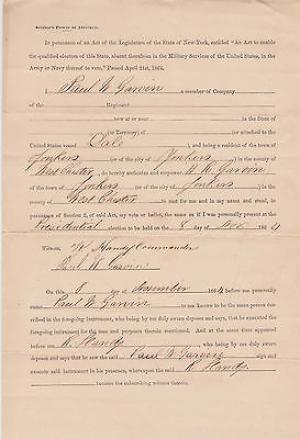 Soldier's Power of Attorney.
In pursuance of an Act of the Legislature of the State of New-York, entitled "An Act to enable
the qualified electors of this State, absent therefrom in the Military Services of the United States, in the
Army or Navy thereof to vote," Passed April 21st, 1864,
I Paul W Garvin a member of Company
of the Regiment
now at or near in the State of
(or Territory) of (or attached to the
United States vessel Dale ), and being a resident of the town
of Yonkers (or city of Yonkers ) in the county
of West Chester, do hereby authorize and empower
of the town of Yonkers (or city of Yonkers ), in the
county of West Chester to cast for me and in my name and stead, in
pursuance of Section 2, of said Act, my vote or ballot, the same as if I was personally present at the
Presidential election to be held on the 8 day of Nov 1864
Witness, W Handy Commander
Paul W Garvin
On this 8 day of November 1864 before me personally
came Paul W Garvin to me known to be the same person described
in the foregoing instrument, and who, being by me duly sworn deposes and says, that he executed
the foregoing instrument for the uses and purposes therein mentioned. And at the same time appeared
before me R. Handy, who being by me duly sworn
deposes and says that he saw the said Paul W Garvin sign and
execute said instrument in his presence, whereupon the said R Handy.
became the subscribing witness thereto.